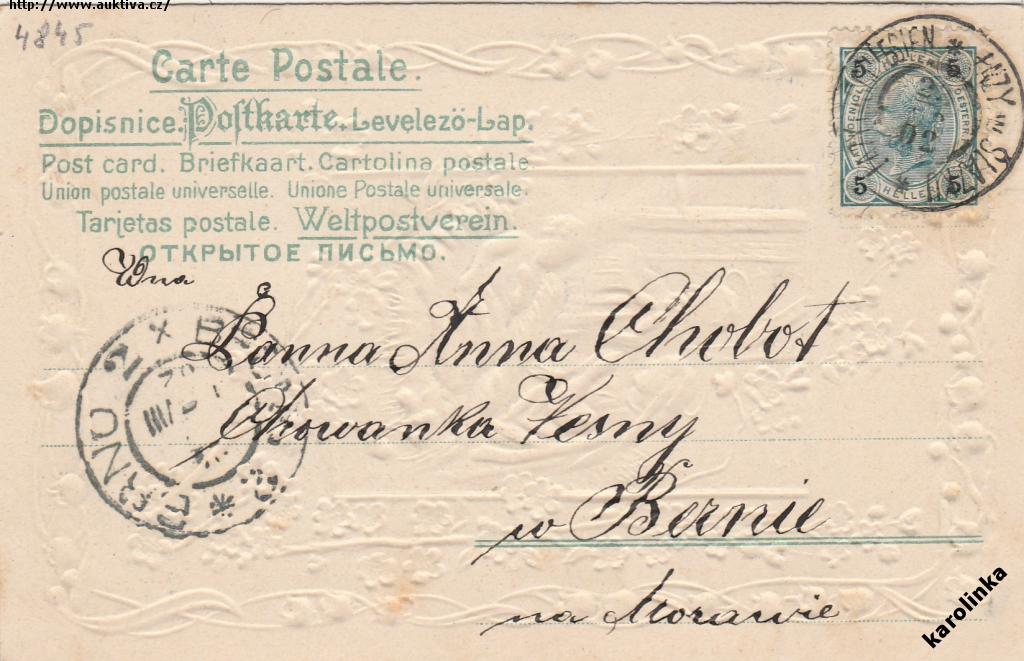 http://www.auktiva.cz/
4845
Carte Postale.
Dopisnice. Postkarte. Levelező-Lap.
Post card. Briefkaart. Cartolina postale
Union postale universelle. Unione Postale universale.
Tarjetas postale. Weltpostverein.
ОТКРЫТОЕ ПИСЬМО.
5 5
02
5 HELLER 5
Wna
Panna Anna Chobot
Chowanka Vesny
w Bernie
na Morawie
BRÜNN 2
BRNO 2
karolinka